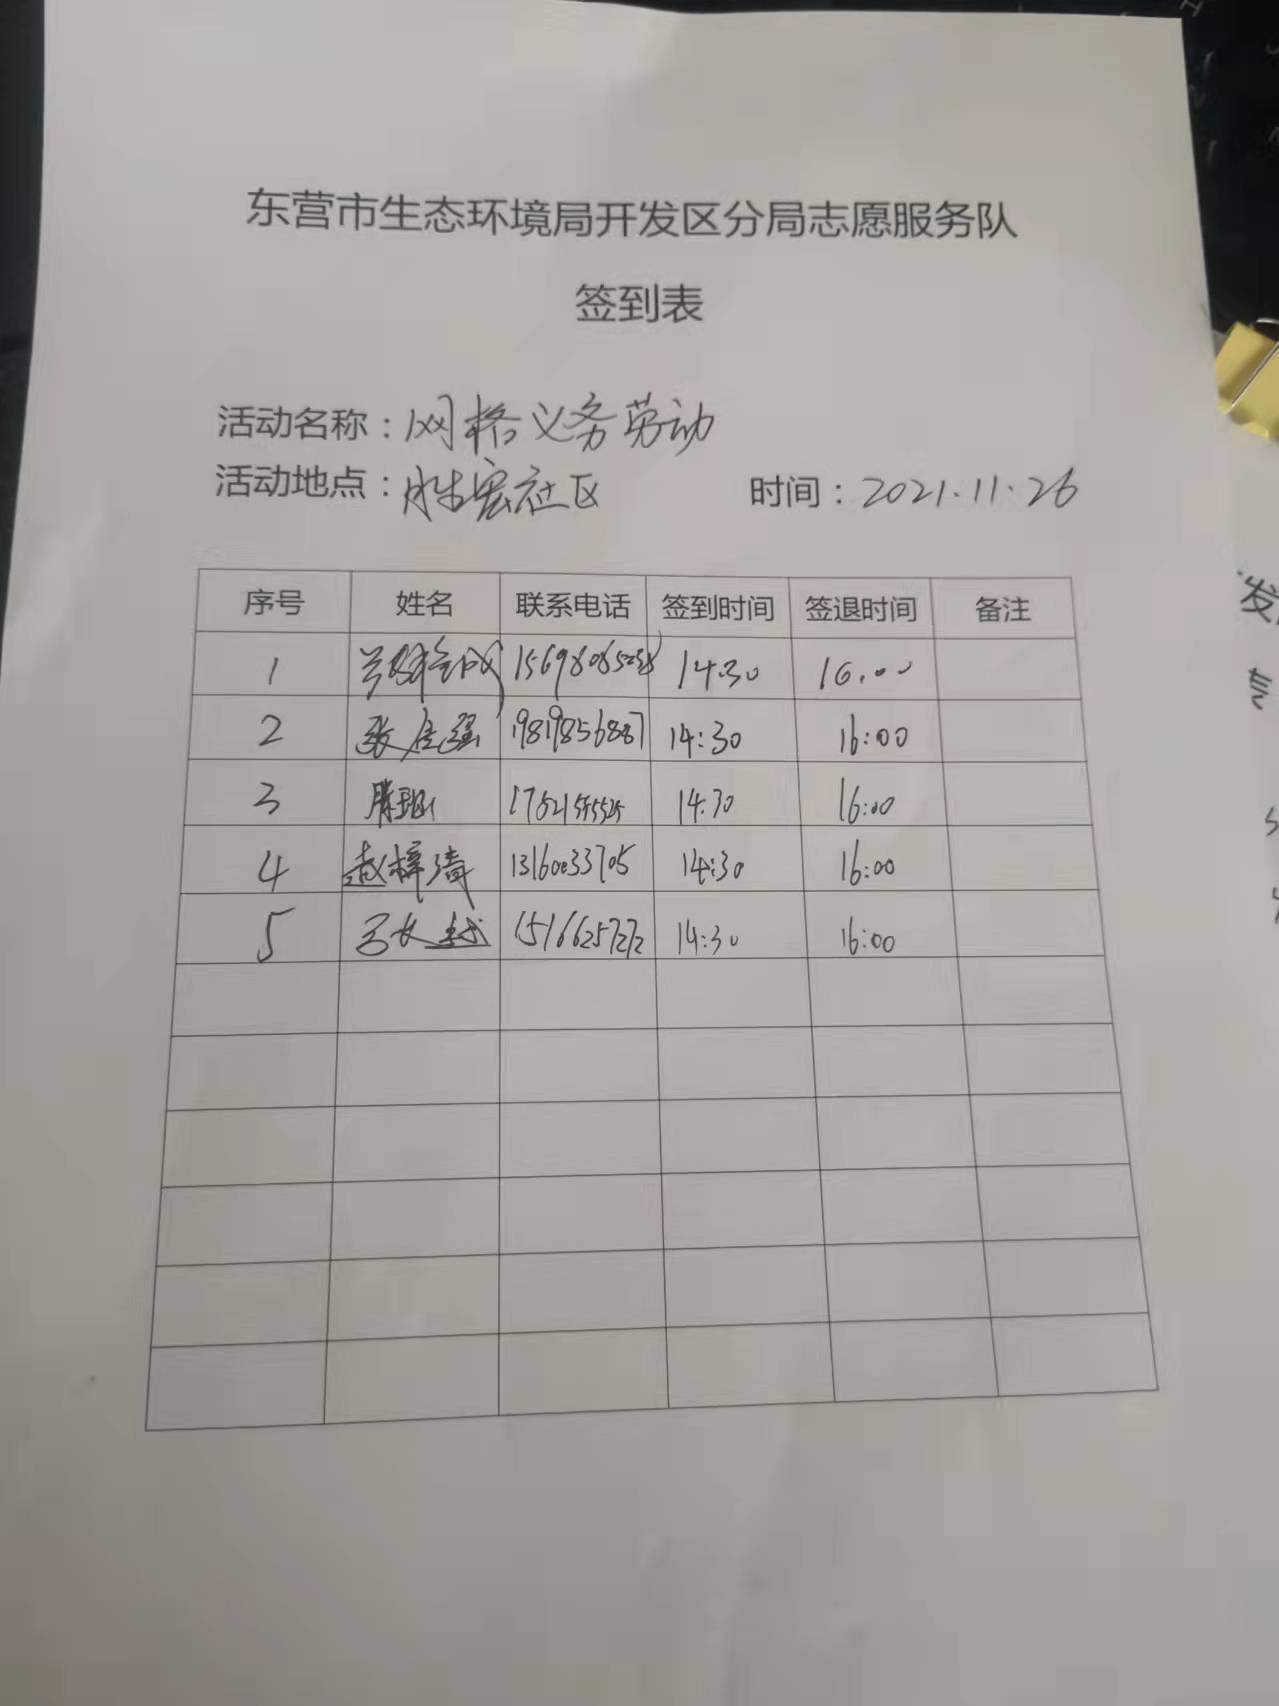 东营市生态环境局开发区分局志愿服务队
签到表
活动名称：网格义务劳动
活动地点：胜宏社区 时间：2021.11.26
序号 姓名 联系电话 签到时间 签退时间 备注
1 14:30 16:00
2 19819856887 14:30 16:00
3 14:30 16:00
4 赵梓清 13160033705 14:30 16:00
5 15166257272 14:30 16:00
发